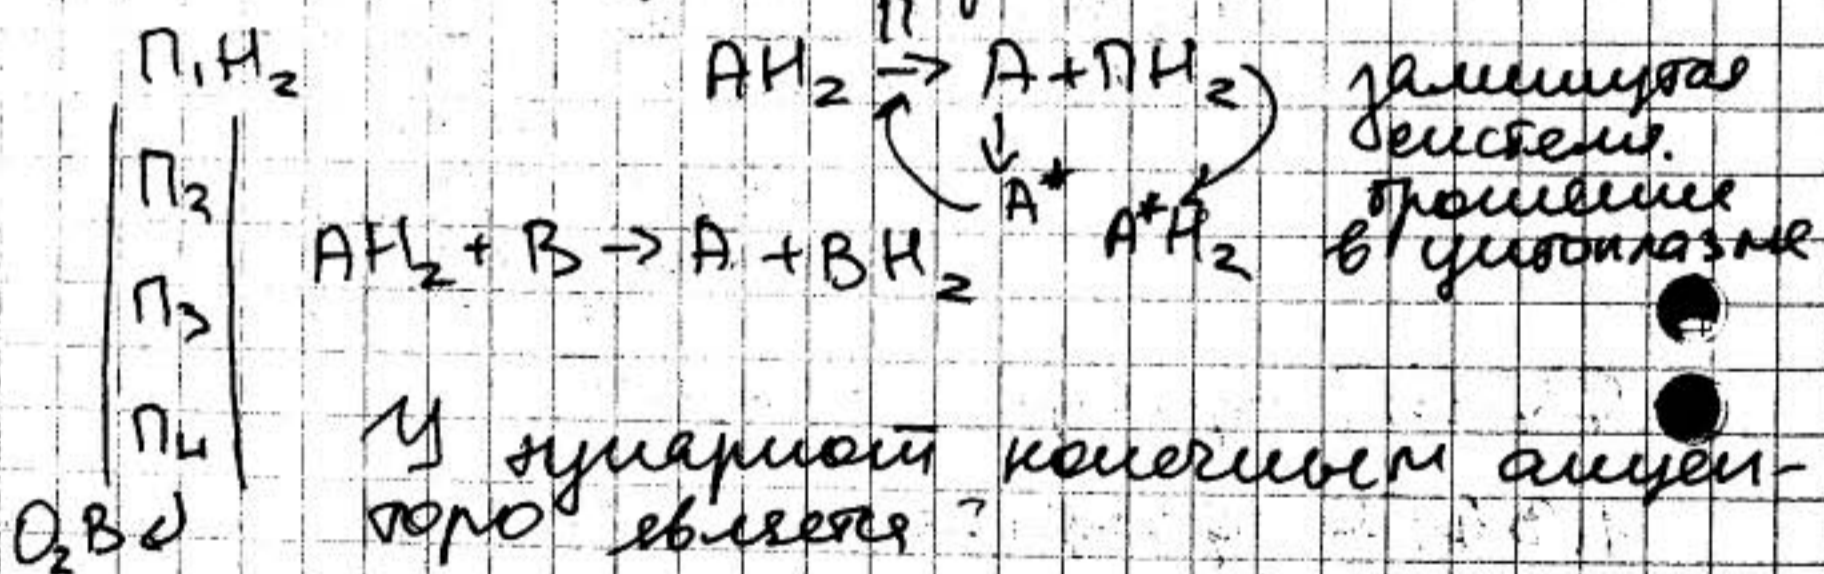 П₁H₂
П₂
П₃
П₄
O₂ B
П
AH₂ → A + ПH₂
↓
A* A*H₂
AH₂ + B → A + BH₂
замкнутая
система.
брожение
в цитоплазме
У эукариот конечным акцеп-
торо является ?